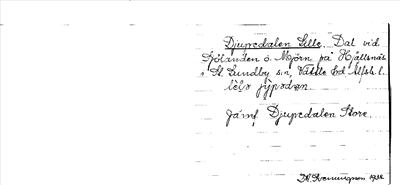 Djupedalen Lille. Dal vid
Sjölanden ö. Mjörn på Hjällsnäs
i St. Lundby s:n, Vättle hd Älfsb. l.
Jämf. Djupedalen Store.
1932